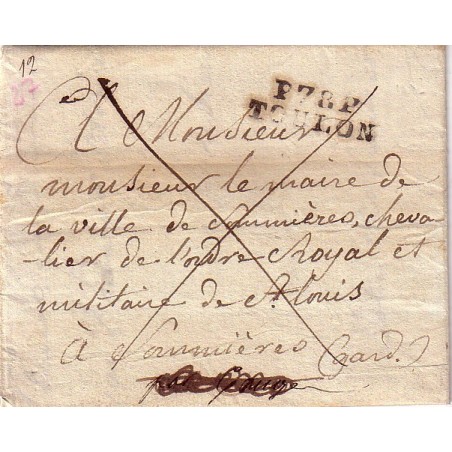 12
P78P
TOULON
A Monsieur
monsieur le maire de
la ville de Sommières, cheva
-lier de l'ordre Royal et
militaire de St Louis
à Sommières (Gard.)
par